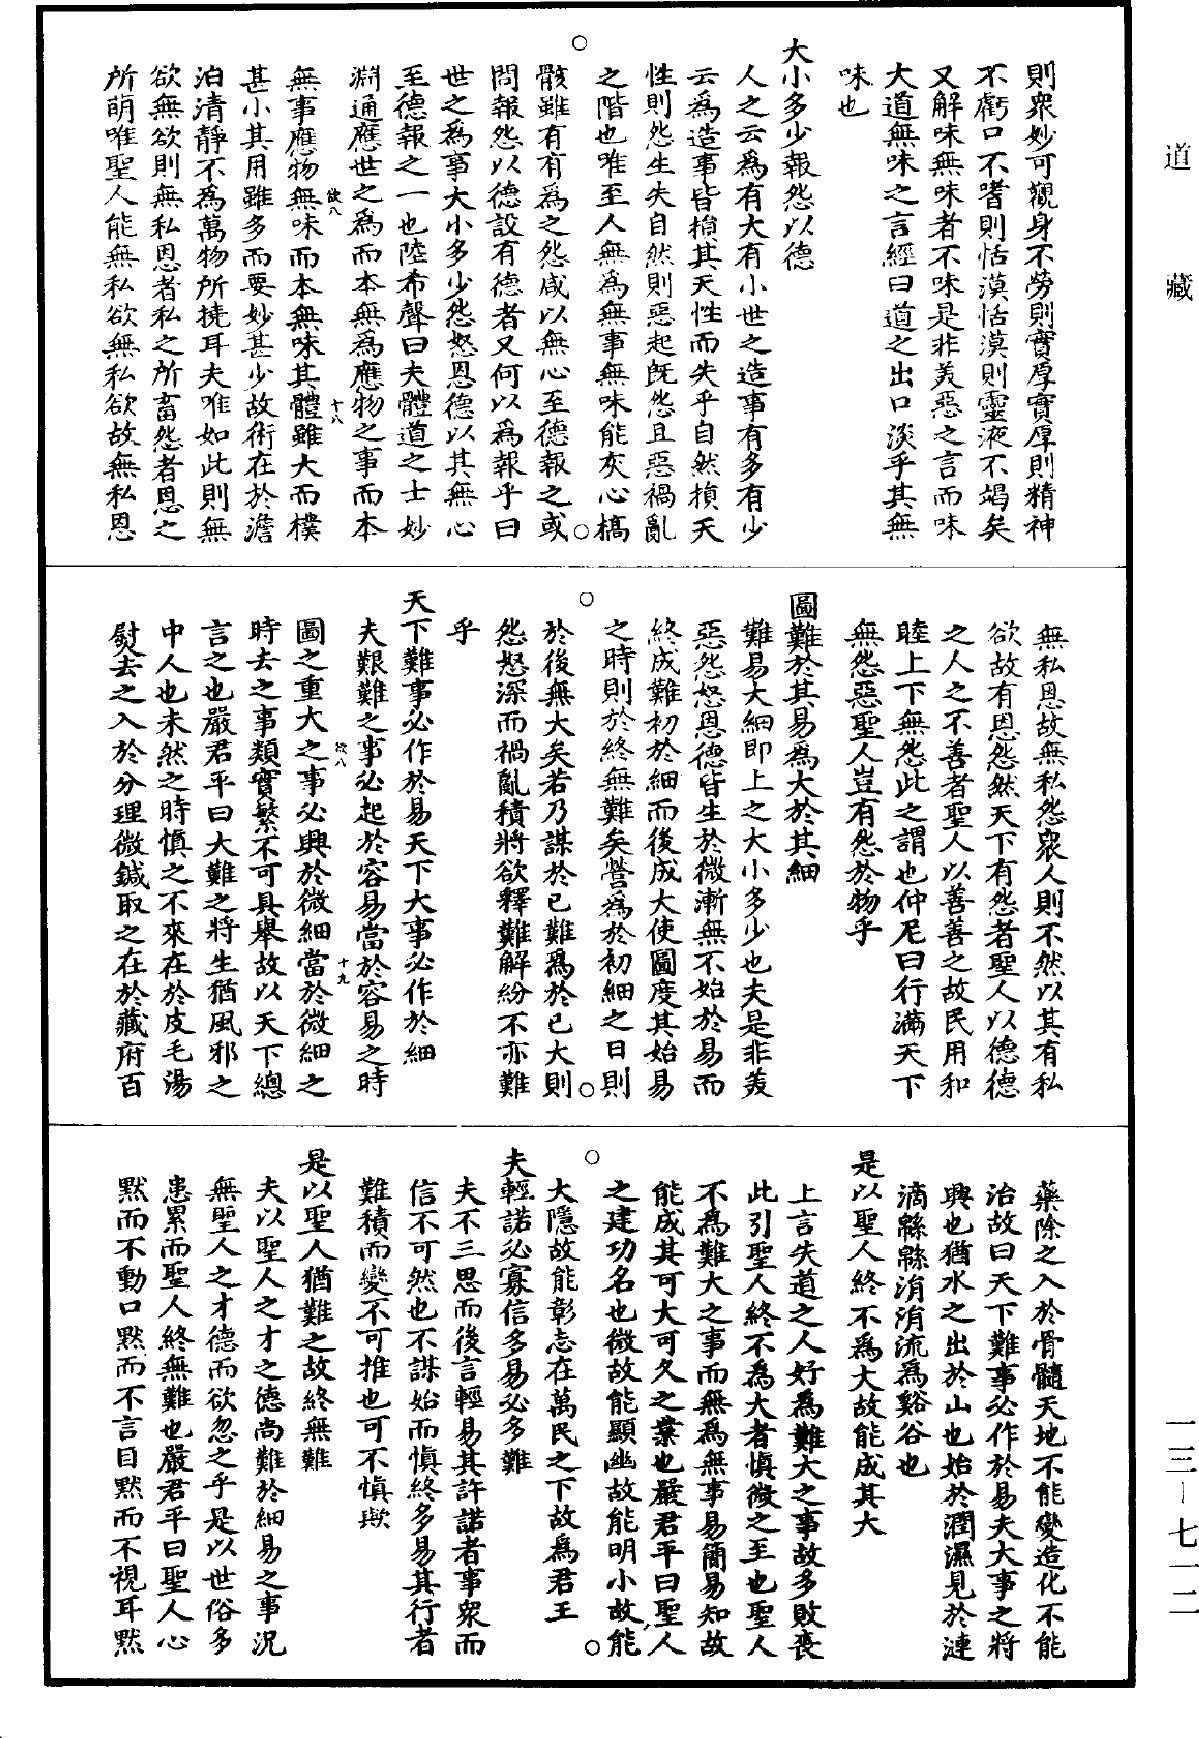 道藏
則衆妙可觀身不勞則實厚實厚則精神
不虧口不嗜則恬漠恬漠則靈液不竭矣
又解味無味者不味是非美惡之言而味
大道無味之言經曰道之出口淡乎其無
味也
大小多少報怨以德
人之云爲有大有小世之造事有多有少
云爲造事皆捎其天性而失乎自然損天
性則怨生失自然則惡起既怨且惡禍亂
之階也唯至人無爲無事無味能灰心槁
骸雖有有爲之怨咸以無心至德報之或
問報怨以德設有德者又何以爲報乎曰
世之爲事大小多少怨怒恩德以其無心
至德報之一也陸希聲曰夫體道之士妙
淵通應世之爲而本無爲應物之事而本
欲八
十八
無事應物無味而本無味其體雖大而樸
甚小其用雖多而要妙甚少故術在於澹
泊清靜不爲萬物所撓耳夫唯如此則無
欲無欲則無私恩者私之所畜怨者恩之
所萌唯聖人能無私欲無私欲故無私恩
無私恩故無私怨衆人則不然以其有私
欲故有恩怨然天下有怨者聖人以德德
之人之不善者聖人以善善之故民用和
睦上下無怨此之謂也仲尼曰行滿天下
無怨惡聖人豈有怨於物乎
圖難於其易爲大於其細
難易大細即上之大小多少也夫是非美
惡怨怒恩德皆生於微漸無不始於易而
終成難初於細而後成大使圖度其始易
之時則於終無難矣營爲於初細之日則
於後無大矣若乃謀於已難爲於已大則
怨怒深而禍亂積將欲釋難解紛不亦難
乎
天下難事必作於易天下大事必作於細
夫艱難之事必起於容易當於容易之時
欲八
十九
圖之重大之事必興於微細當於微細之
時去之事類實繁不可具舉故以天下總
言之也嚴君平曰大難之將生猶風邪之
中人也未然之時慎之不來在於皮毛湯
熨去之入於分理微鍼取之在於藏府百
藥除之入於骨髓天地不能變造化不能
治故曰天下難事必作於易夫大事之將
興也猶水之出於山也始於潤濕見於漣
滴緜緜涓涓流爲谿谷也
是以聖人終不爲大故能成其大
上言失道之人好爲難大之事故多敗喪
此引聖人終不爲大者慎微之至也聖人
不爲難大之事而無爲無事易簡易知故
能成其可大可久之業也嚴君平曰聖人
之建功名也微故能顯幽故能明小故能
大隱故能彰志在萬民之下故爲君王
夫輕諾必寡信多易必多難
夫不三思而後言輕易其許諾者事衆而
信不可然也不謀始而慎終多易其行者
難積而變不可推也可不慎歟
是以聖人猶難之故終無難
夫以聖人之才之德尚難於細易之事況
無聖人之才德而欲忽之乎是以世俗多
患累而聖人終無難也嚴君平曰聖人心
默而不動口默而不言目默而不視耳默
一三—七一二